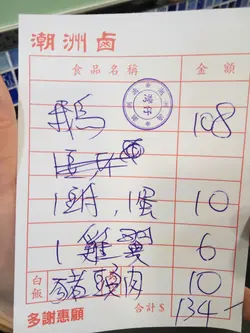 潮洲鹵
食品名稱 金額
鵝 108
1 頭,1蛋 10
1 雞翼 6
白飯 豬頭肉 10
多謝惠顧 合計$ 134